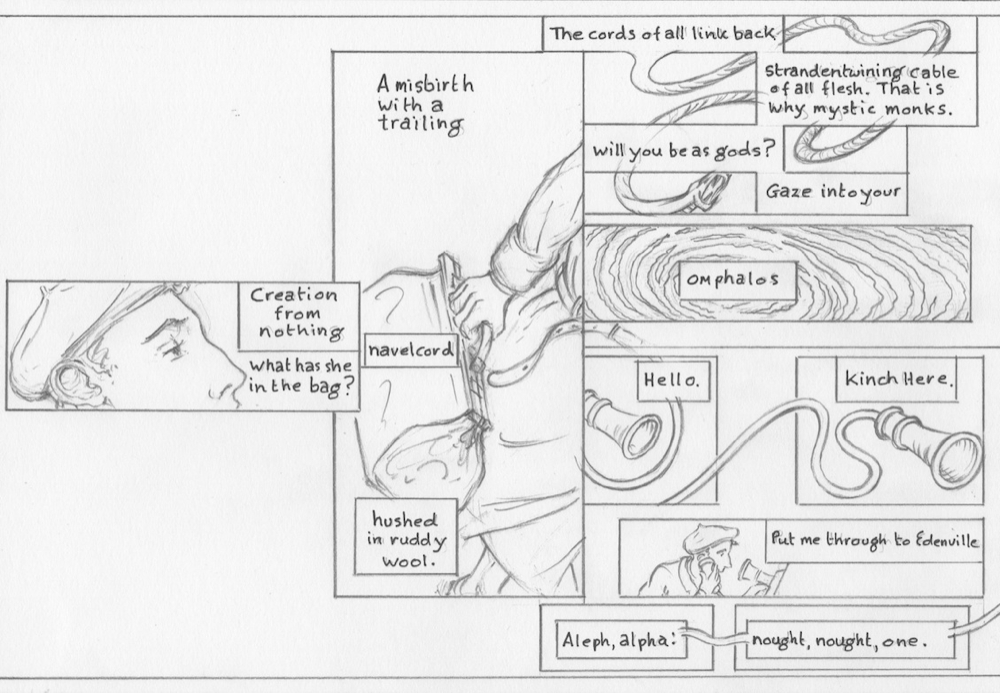 Creation
from
nothing
What has she
in the bag?
A misbirth
with a
trailing
navelcord
hushed
in ruddy
wool.
The cords of all link back
Strandentwining cable
of all flesh. That is
why mystic monks.
will you be as gods?
Gaze into your
omphalos
Hello.
Kinch Here.
Put me through to Edenville
Aleph, alpha:
nought, nought, one.